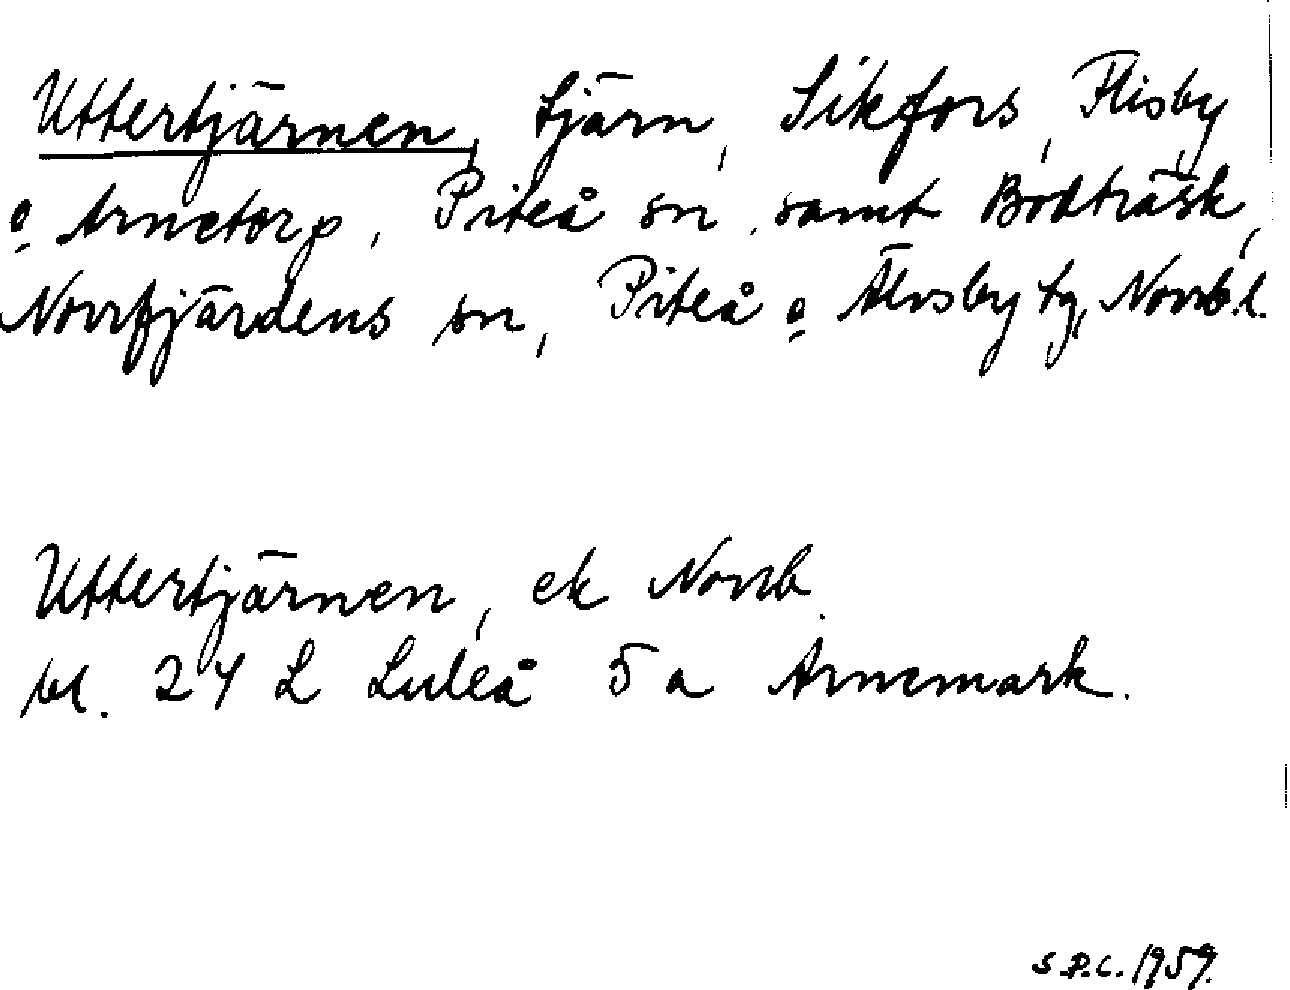 Uttertjärnen, tjärn, Sikfors, Flisby,
o Arnetorp, Piteå sn, samt Bodträsk,
Norrfjärdens sn, Piteå o Älvsby tg, Norrb.l.
Uttertjärnen, ek Norrb.
bl. 24 L Luleå 5 a Arnemark.
S.P.C. 1959.